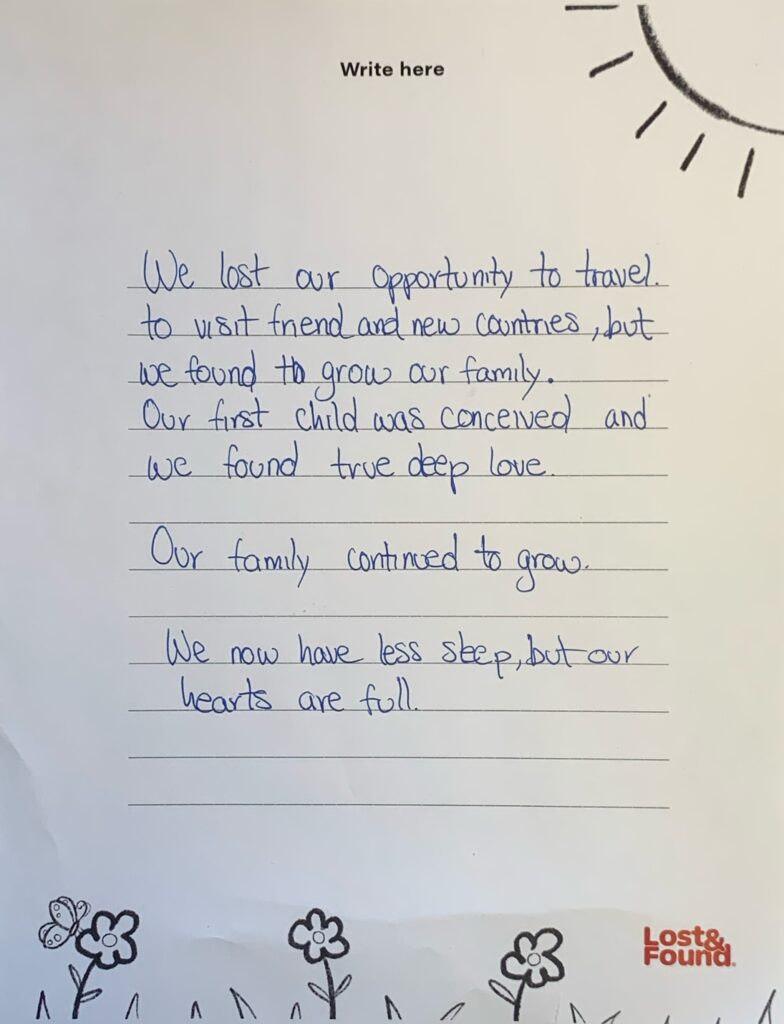 Write here
We lost our opportunity to travel.
to visit friend and new countries, but
we found to grow our family.
Our first child was conceived and
we found true deep love.
Our family continued to grow.
We now have less sleep, but our
hearts are full.
Lost&
Found